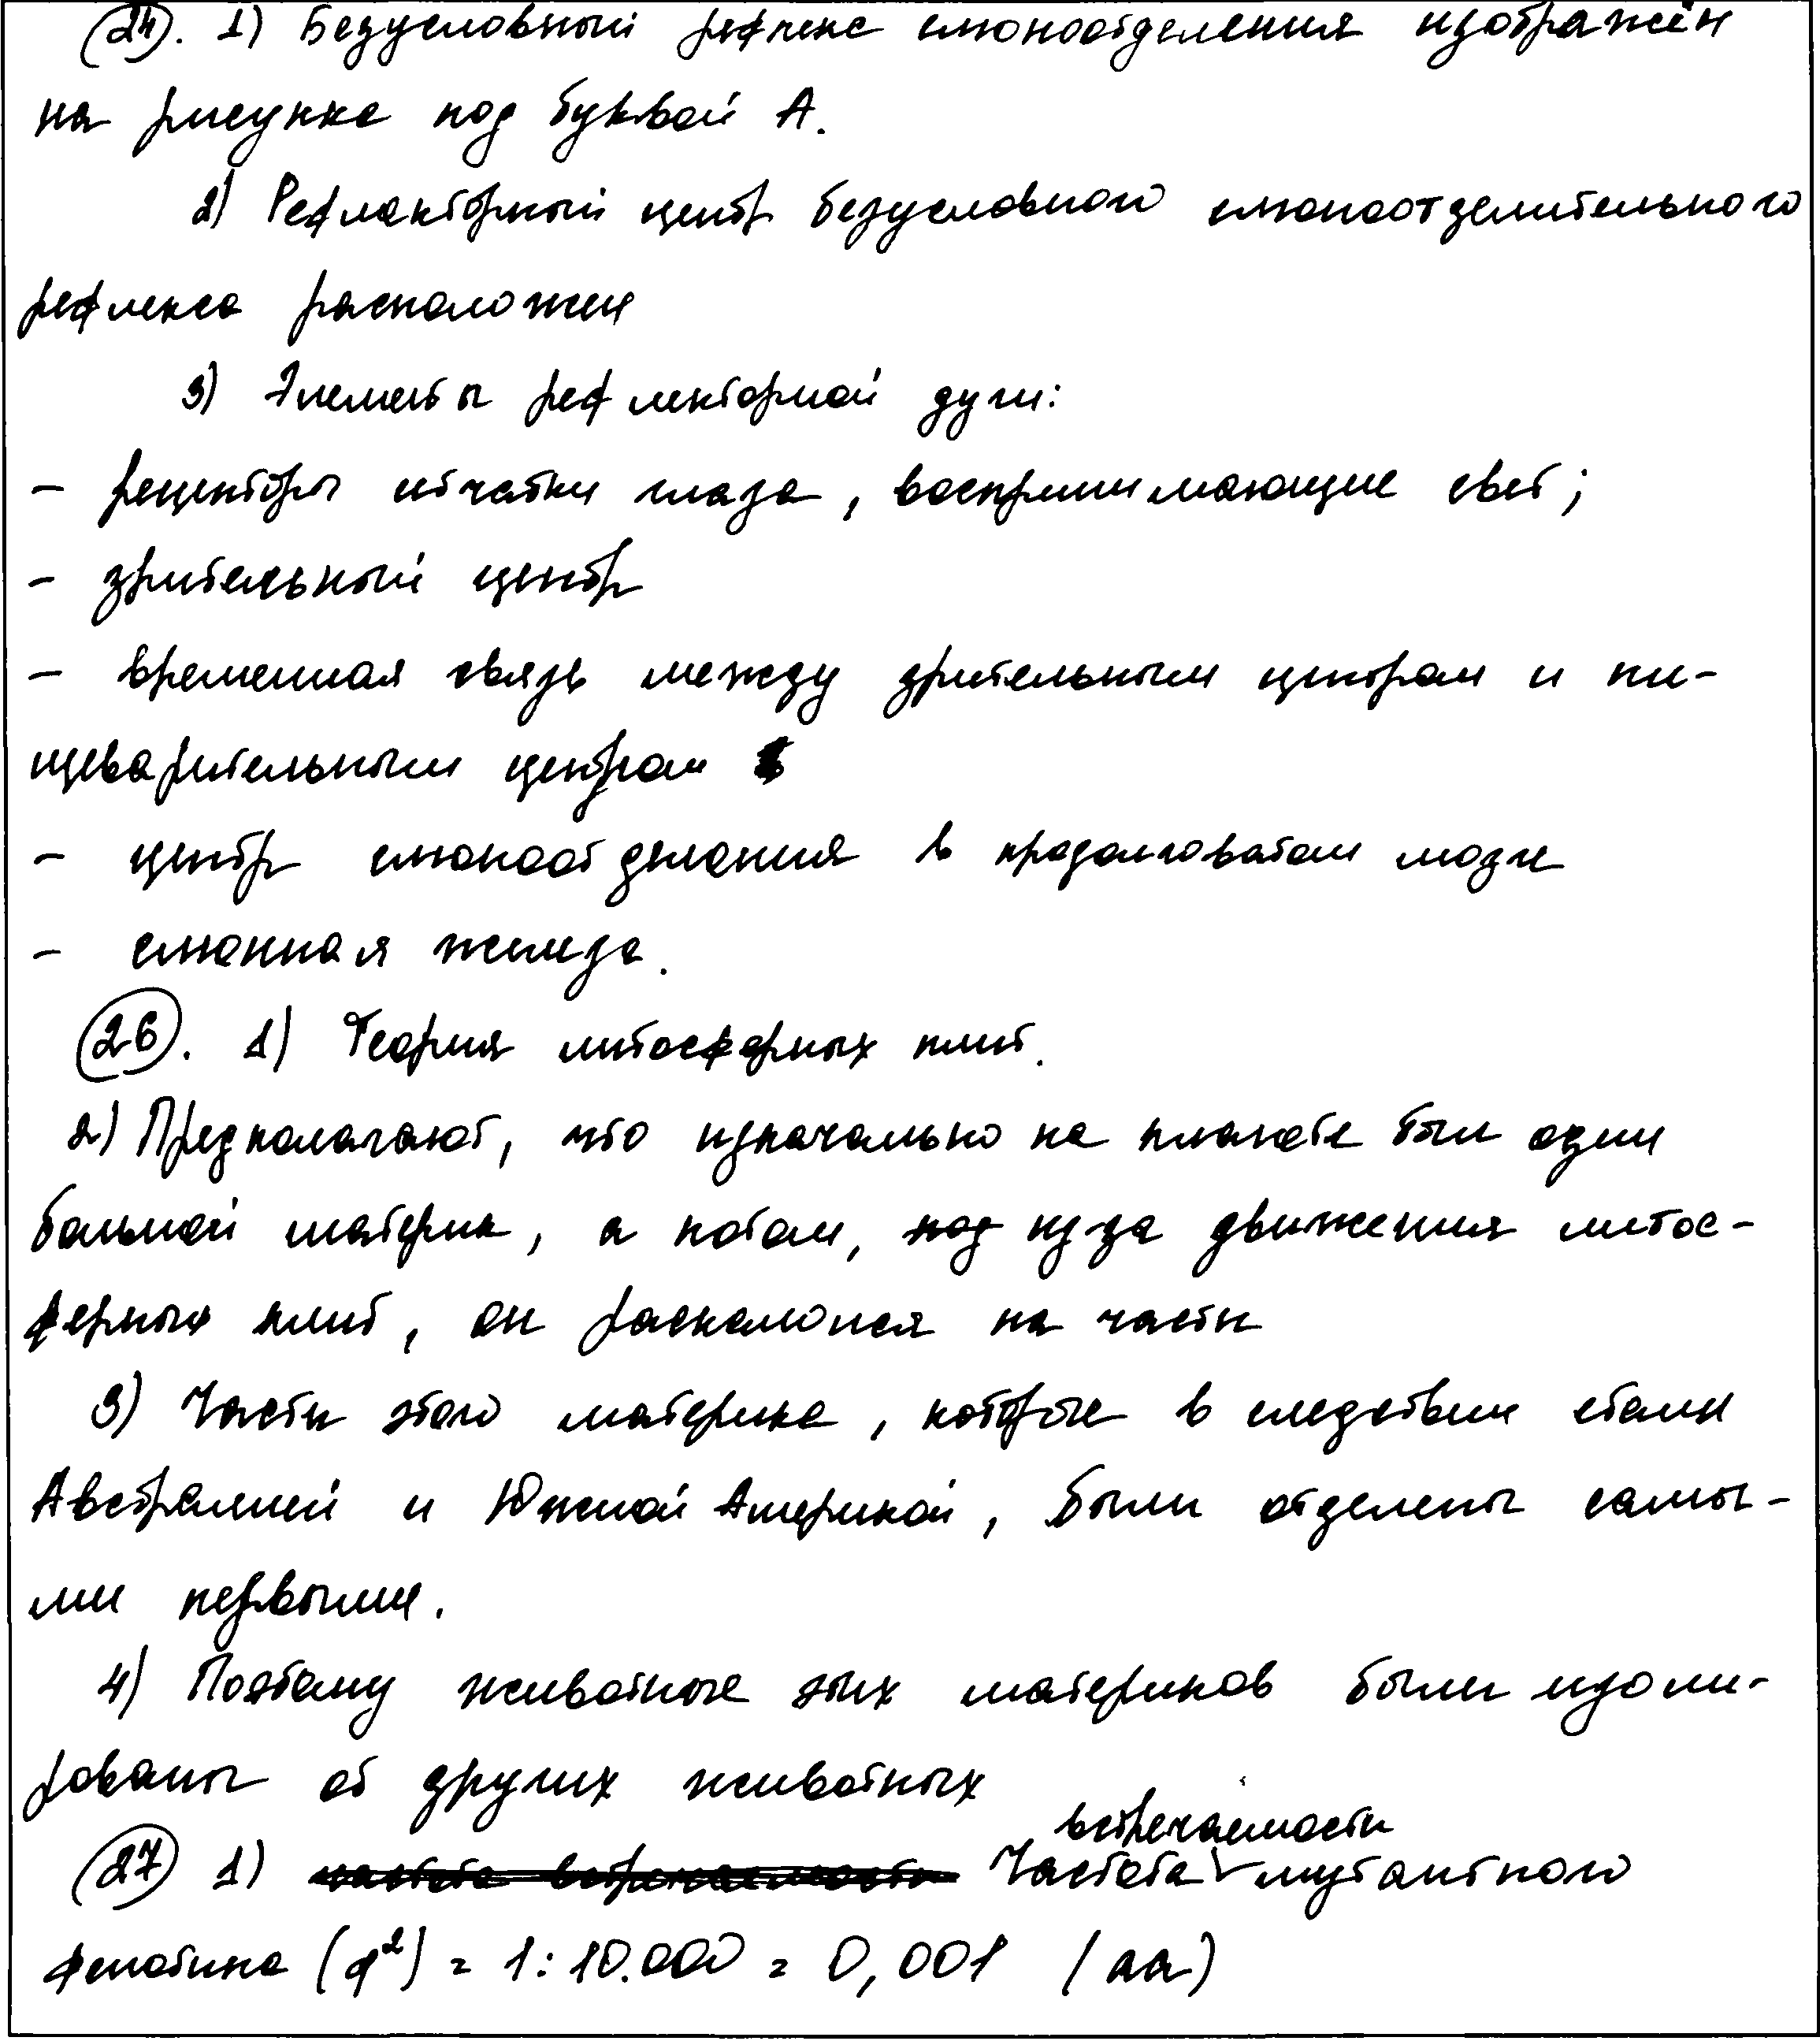 24. 1) Безусловный рефлекс слюноотделения изображён
на рисунке под буквой А.
2) Рефлекторный центр безусловного слюноотделительного
рефлекса расположен
3) Элементы рефлекторной дуги:
– рецепторы сетчатки глаза, воспринимающие свет;
– зрительный центр
– временная связь между зрительным центром и пи-
щеварительным центром
– центр слюноотделения в продолговатом мозге
– слюнная железа.
26. 1) Теория литосферных плит.
2) Предполагают, что изначально на планете был один
большой материк, а потом, под из за движения литос-
ферных плит, он раскололся на части
3) Части этого материка, которые в следствии стали
Австралией и Южной Америкой, были отделены самы-
ми первыми.
4) Поэтому животные этих материков были изоли-
рованы от других животных
встречаемости
27 1) частота встречаемости Частота мутантного
фенотипа (q²) = 1:10.000 = 0,001 (aa)